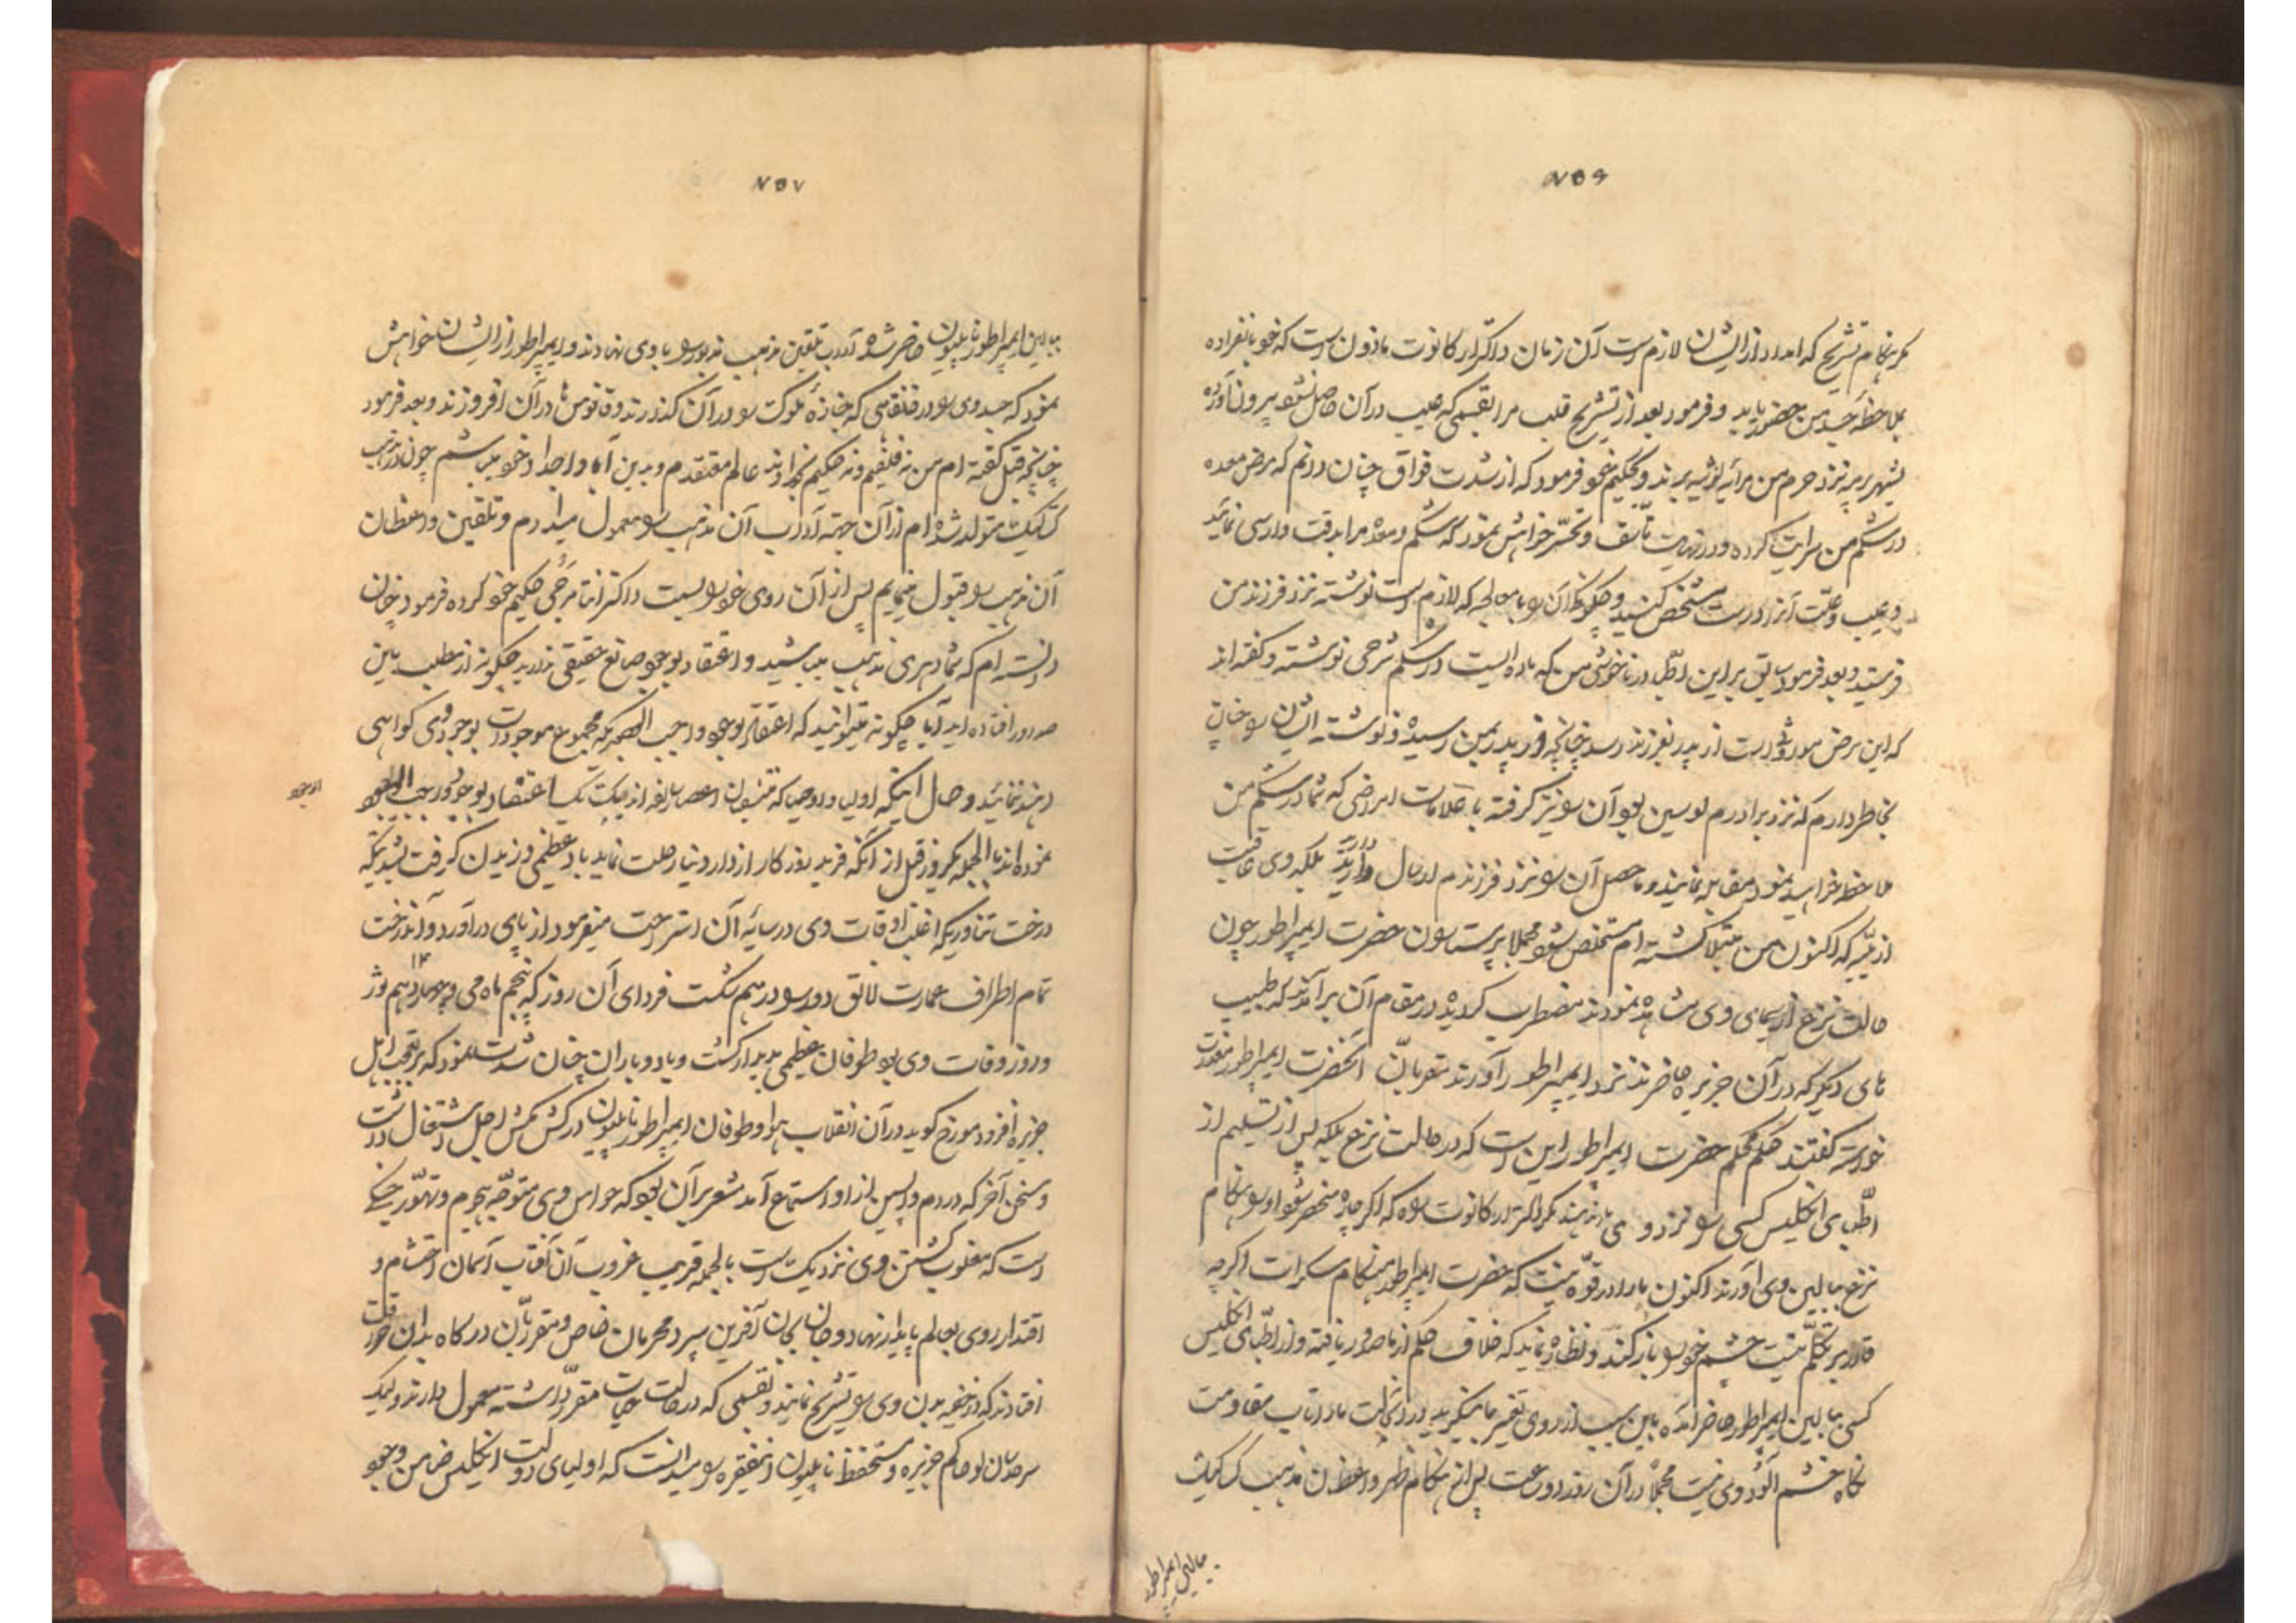 ۷۵۶
مگر هنگام تشریح که امداد از ایشان لازم است آن زمان داکتر ارکانوت ماذون است که خود بانفراده
بملاحظه جسد من حضور یابد و فرمود بعد از تشریح قلب مرا بقسمی که عیب در آن حاصل نشود بیرون آورده
بشهر پرمه نزد حرم من مرایه لوئیسه برند و بحکیم خود فرمود که از شدت فواق چنان دانم که مرض معده
در شکم من سرایت کرده و در نهایت تأسف و تحسر خواهش نمود که شکم و معده مرا بدقت وارسی نمائید
و عیب و علت آنرا درست مشخص کنید و چگونگی آن را با معالجه که لازم است نوشته نزد فرزند من
فرستید و بعد فرمود سابق بر این اطبا در ناخوشی من که ماده ایست در شکم شرحی نوشته و گفته اند
که این مرض موروثی است از پدر بفرزند رسد چنانچه از پدر بمن رسیده و نوشته ایشان را چنان
بخاطر دارم که نزد برادرم لوسین بود آن را نیز گرفته با علامات امراضی که شما در شکم من
ملاحظه خواهید نمود مقابله نمایند و ماحصل آن را نزد فرزندم ارسال دارید بلکه وی عاقبت
از بلیه که اکنون من مبتلا گشته ام مستخلص شود مجملا پرستاران حضرت ایمپراطور چون
حالت نزع از سیمای وی مشاهده نمودند مضطرب گردیده در مقام آن برآمدند که طبیب
های دیگر که در آن جزیره حاضرند نزد ایمپراطور آورند مقربان آنحضرت ایمپراطور معذرت
خواسته گفتند حکم محکم حضرت ایمپراطور این است که در حالت نزع بلکه پس از تسلیم از
اطبای انگلیس کسی را نزد وی ندهند مگر داکتر ارکانوت را که اگر چاره منحصر شود او را هنگام
نزع ببالین وی آورند اکنون ما را در قوه نیست که حضرت ایمپراطور هنگام سکرات اگرچه
قادر بر تکلم نیست چشم خود را باز کند و نظاره نماید که خلاف حکم از ما صدور یافته و از اطبای انگلیس
کسی ببالین ایمپراطور حاضر آمده باین سبب از روی تغیر بما بنگرید در آنحالت ما را تاب مقاومت
نگاه خشم آلود وی نیست مجملا در آن روز دو ساعت پس از هنگام ظهر واعظان مذهب کتلیک
ببالین ایمپراطور
۷۵۷
ببالین ایمپراطور ناپلیون حاضر شده آداب تلقین مذهب مذبور را با وی نهادند و ایمپراطور از ایشان خواهش
نمود که جسد وی را در قنقاسی که جنازه ملوک را در آن گذارند و فانوس ها در آن افروزند و بعد فرمود
چنانچه قبل گفته ام من نه فیلسوفم و نه حکیم بخداوند عالم معتقدم و بدین آبا و اجداد خود میباشم چون در مذهب
کتلیک متولد شده ام از آن جهت آداب آن مذهب را معمول میدارم و تلقین واعظان
آن مذهب را قبول مینمایم پس از آن روی خود را بسمت داکتر انتامرجی حکیم خود کرده فرمود چنان
دانسته ام که شما دهری مذهب میباشید و اعتقاد بوجود صانع حقیقی ندارید چگونه از مطلب باین
حد دور افتاده اید آیا چگونه میتوانید که اعتقاد بوجود واجب الوجودیکه مجموع موجودات بوجود وی گواهی
دهند ننمائید و حال اینکه اولیا و اوصیا که مقبولان اعصار سالفه اند یک یک اعتقاد بوجود واجب الوجود
نموده اند بالجمله یکروز قبل از آنکه فرید روزگار از دار دنیا رحلت نماید باد عظیمی وزیدن گرفت بشدتیکه
درخت تناوریکه اغلب اوقات وی در سایه آن استراحت میفرمود از پای درآورد و آندرخت
تمام اطراف عمارت لانق دود را در هم شکست فردای آن روز که پنجم ماه می و چهاردهم روز
و روز وفات وی بود طوفان عظیمی پدیدار گشت و باد و باران چنان شدت نمود که بر تعجب اهل
جزیره افزود مورخ گوید در آن انقلاب هوا و طوفان ایمپراطور ناپلیون در کش مکش اجل اشتغال داشت
و سخن آخر که در دم واپسین از او استماع آمد مشعر بر آن بود که حواس وی متوجه هجوم و تهور جنگی
است که مغلوب گشتن وی نزدیک است بالجمله قریب غروب آن آفتاب آسمان احتشام و
اقتدار روی بعالم پایدار نهاد و جان بجان آفرین سپرد محرمان خاص و مقربان درگاه بدان وقت
افتادند که دخمه بدن وی را تشریح نمایند و بقسمی که در حالت حیات مقرر داشته معمول دارند ولیک
سر هدسان لو حاکم جزیره و مستحفظ ناپلیون اینفقره را میدانست که اولیای دولت انگلیس ضامن وجود